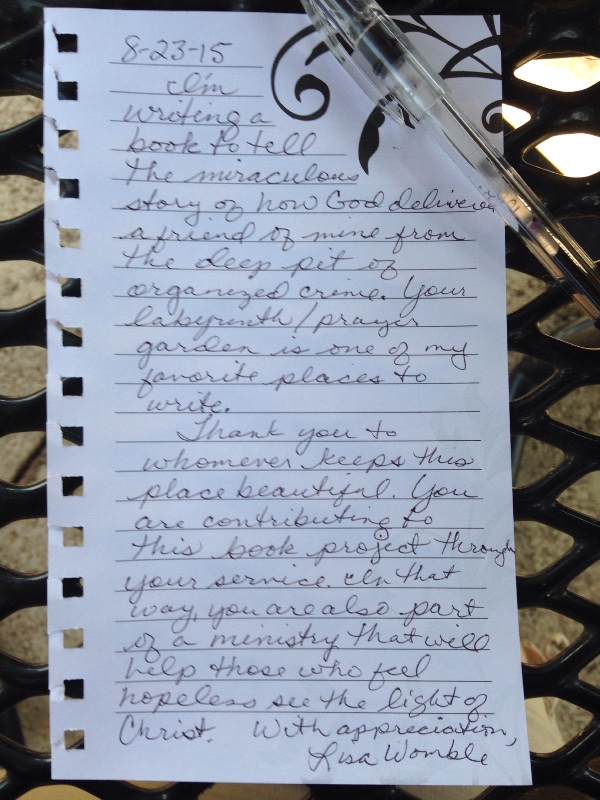 8-23-15
I'm
writing a
book to tell
the miraculous
story of how God delivered
a friend of mine from
the deep pit of
organized crime. Your
labyrinth/prayer
garden is one of my
favorite places to
write.
Thank you to
whomever keeps this
place beautiful. You
are contributing to
this book project through
your service. In that
way, you are also part
of a ministry that will
help those who feel
hopeless see the light of
Christ. With appreciation,
Lisa Womble